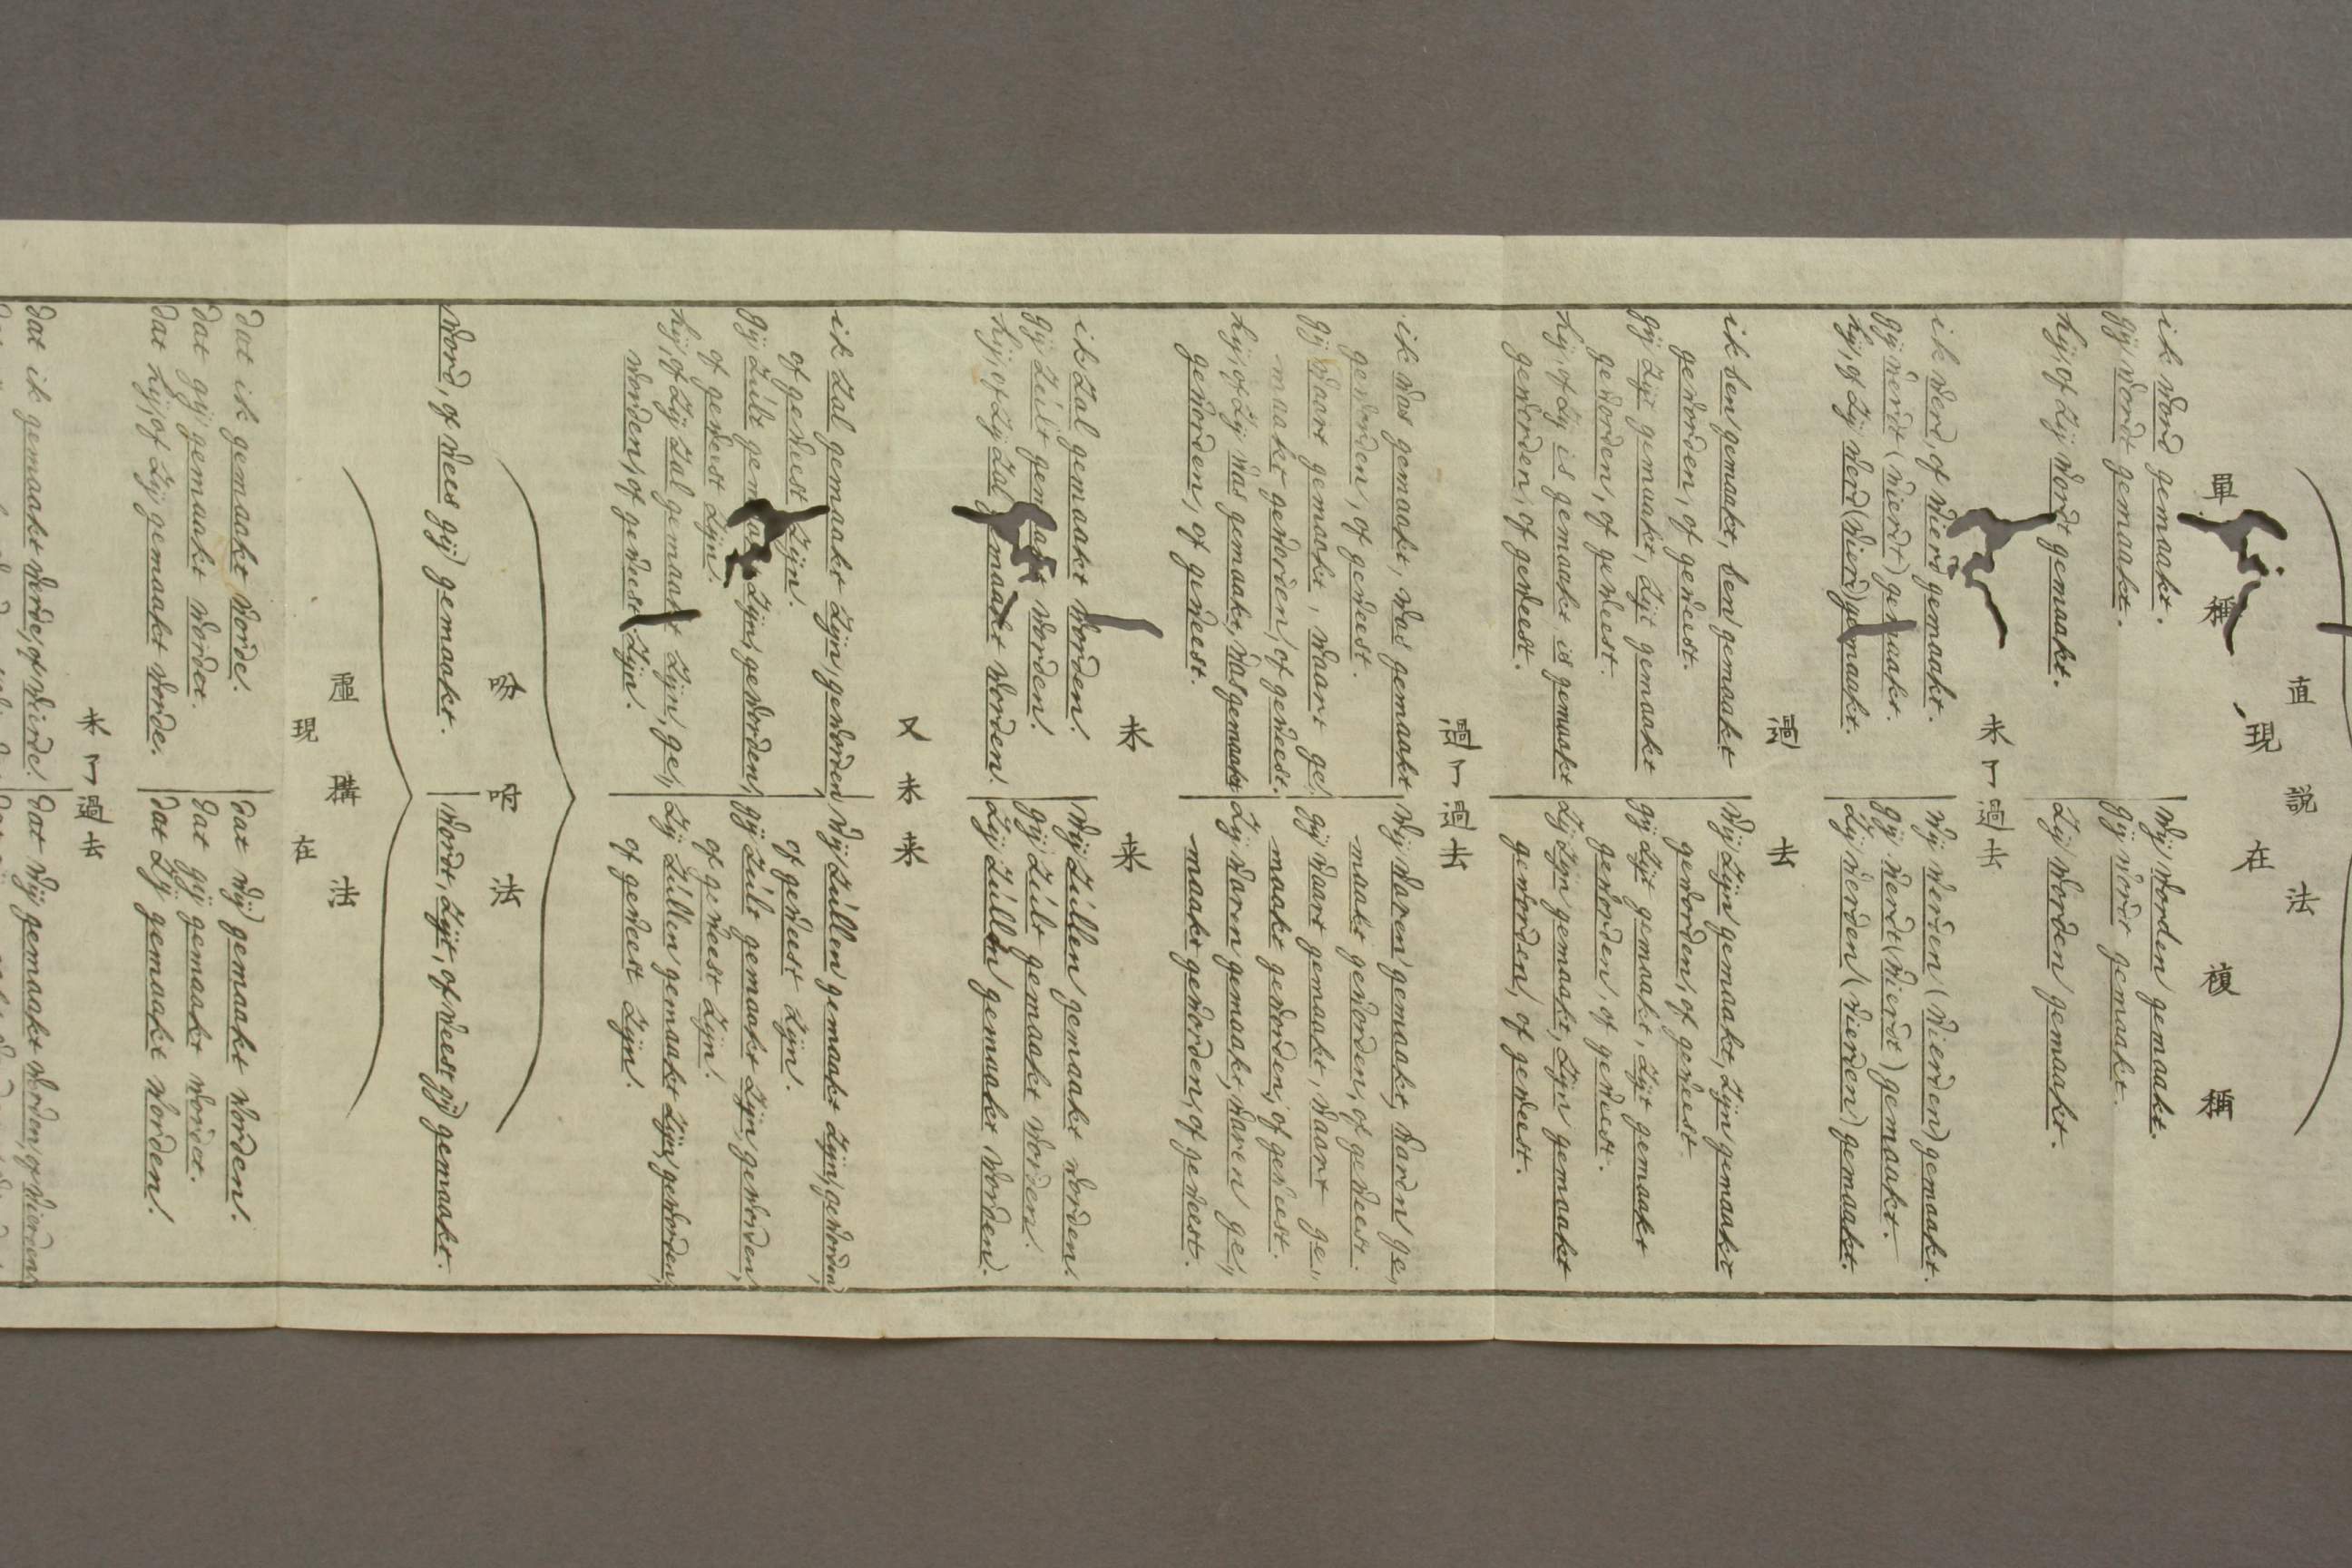 直説法
現在
單稱 複稱
ik word gemaakt. wij worden gemaakt.
gij wordt gemaakt. gij wordt gemaakt.
hij, of zij wordt gemaakt. zij worden gemaakt.
未ㄱ過去
ik werd, of wierd gemaakt. wij werden (wierden) gemaakt.
gij werdt (wierdt) gemaakt. gij werdt (wierdt) gemaakt.
hij, of zij werd (wierd) gemaakt. zij werden (wierden) gemaakt.
過去
ik ben gemaakt, ben gemaakt wij zijn gemaakt, zijn gemaakt
geworden, of geweest. geworden, of geweest.
gij zijt gemaakt, zijt gemaakt gij zijt gemaakt, zijt gemaakt
geworden, of geweest. geworden, of geweest.
hij, of zij is gemaakt is gemaakt zij zijn gemaakt, zijn gemaakt
geworden, of geweest. geworden, of geweest.
過ㄱ過去
ik was gemaakt, was gemaakt wij waren gemaakt, waren ge,
geworden, of geweest. maakt geworden, of geweest.
gij waart gemaakt, waart ge, gij waart gemaakt, waart ge,
maakt geworden, of geweest. maakt geworden, of geweest.
hij, of zij was gemaakt, was gemaakt zij waren gemaakt, waren ge,
geworden, of geweest. maakt geworden, of geweest.
未来
ik zal gemaakt worden. wij zúllen gemaakt worden.
gij zúlt gemaakt worden. gij zúlt gemaakt worden.
hij, of zij zal gemaakt worden. zij zúllen gemaakt worden.
又未来
ik zal gemaakt zijn, geworden, wij zúllen gemaakt zijn, geworden,
of geweest zijn. of geweest zijn.
gij zúlt gemaakt zijn, geworden, gij zúlt gemaakt zijn, geworden,
of geweest zijn. of geweest zijn.
hij, of zij zal gemaakt zijn, ge, zij zúllen gemaakt zijn, geworden,
worden, of geweest zijn. of geweest zijn.
吩咐法
word, of wees gij gemaakt. wordt, zijt, of weest gij gemaakt.
虚構法
現在
dat ik gemaakt worde. dat wij gemaakt worden.
dat gij gemaakt wordet. dat gij gemaakt wordet.
dat hij, of zij gemaakt worde. dat zij gemaakt worden.
未ㄱ過去
dat ik gemaakt werde, of wierde. dat wij gemaakt werden, of wierden